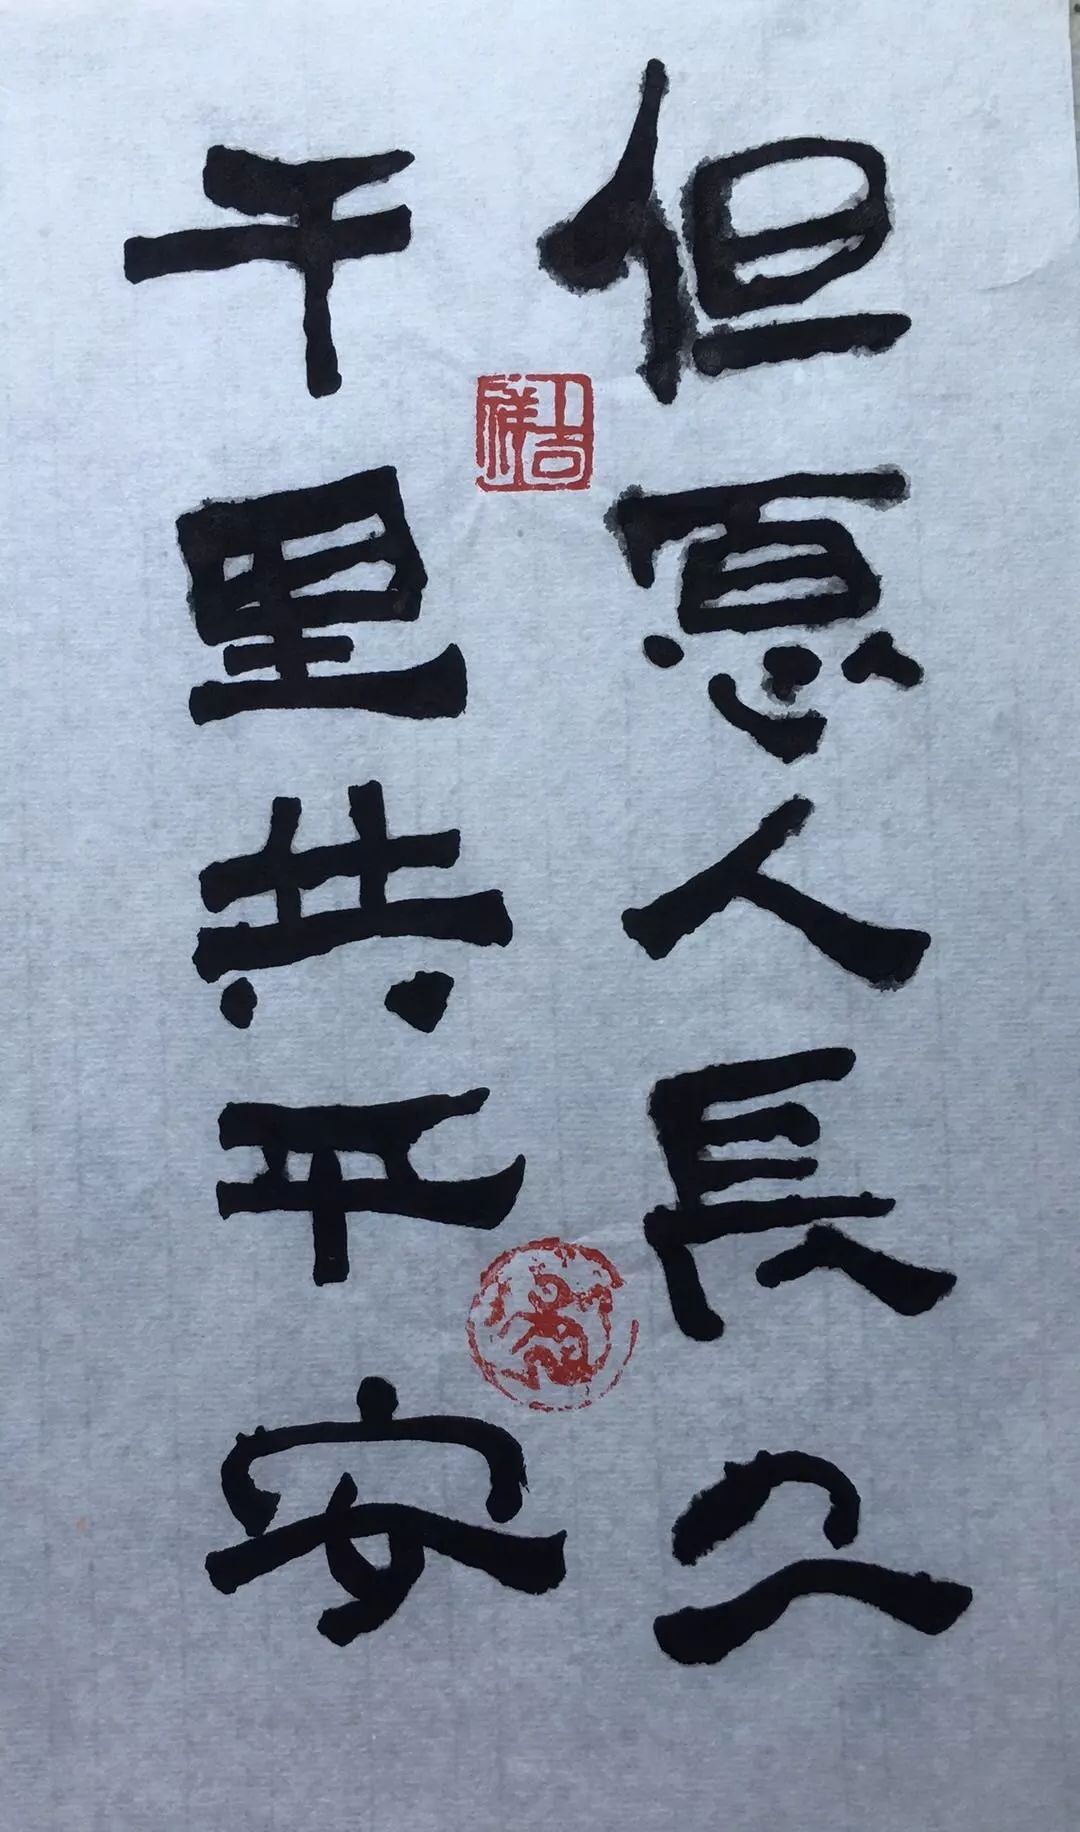 但愿人長久
千里共平安
吉祥